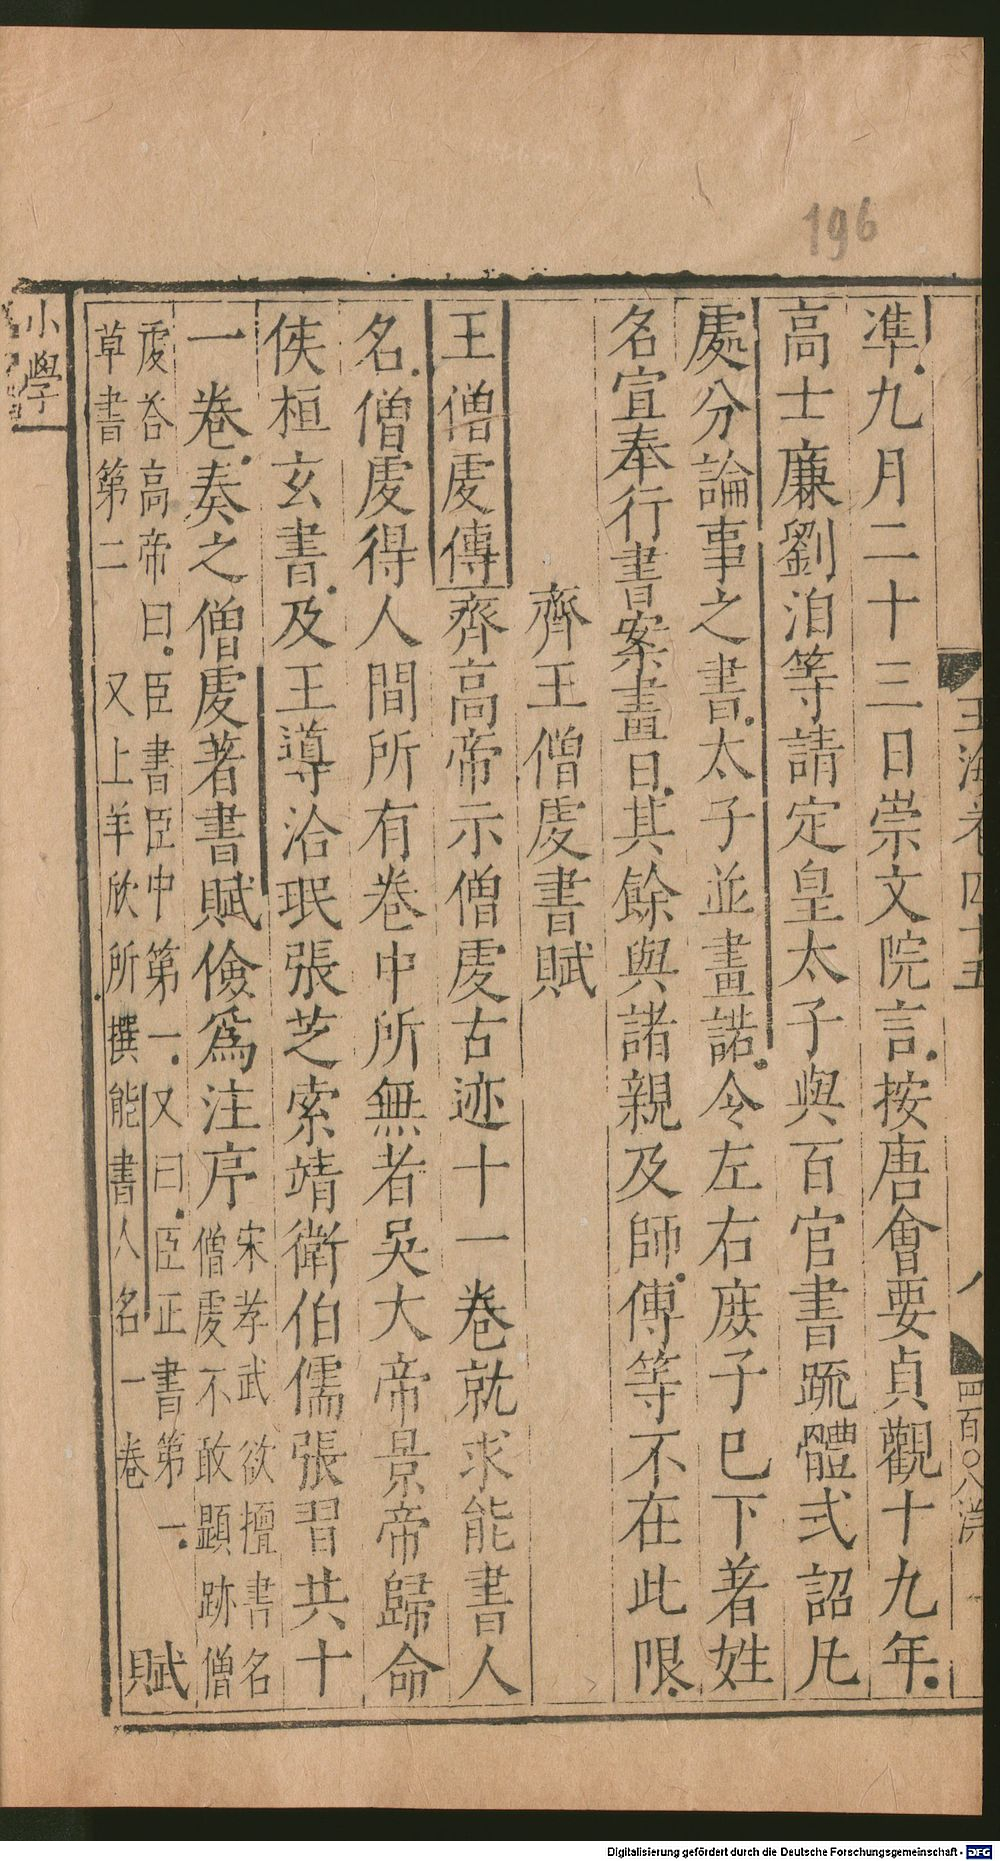 196
玉海卷四十五
八
四百〇八
凖九月二十三日崇文院言按唐會要貞觀十九年
高士廉劉洎等請定皇太子與百官書䟽體式詔凡
處分論事之書太子並畫諾令左右庻子巳下著姓
名宣奉行書案畫日其餘與諸親及師傅等不在此限
齊王僧䖍書賦
王僧䖍傳齊高帝示僧䖍古迹十一卷就求能書人
名僧䖍得人間所有卷中所無者吳大帝景帝歸命
侯桓玄書及王導洽珉張芝索靖衛伯儒張習共十
一卷奏之僧䖍著書賦儉爲注序宋孝武欲擅書名
僧䖍不敢顯跡僧
䖍答高帝曰臣書臣中第一又曰臣正書第一
草書第二又上羊欣所撰能書人名一卷
賦
小學
Digitalisierung gefördert durch die Deutsche Forschungsgemeinschaft - DFG